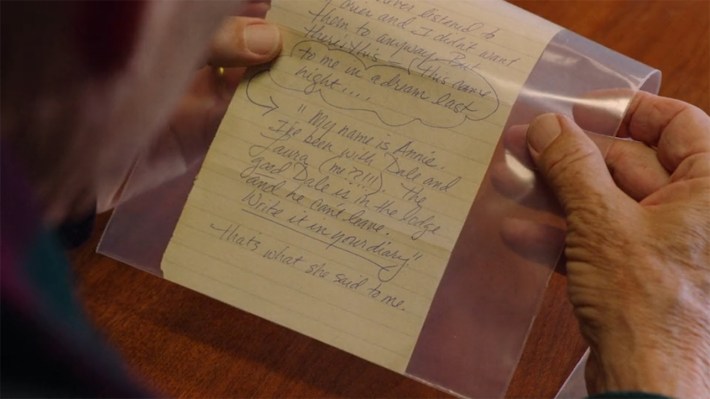 never listened to
ever and I didn't want
them to anyway.
there: this - this came
to me in a dream last
night....
"My name is Annie.
I've been with Dale and
Laura (me?!!!). The
good Dale is in the lodge
and he can't leave.
Write it in your diary."
Thats what she said to me.